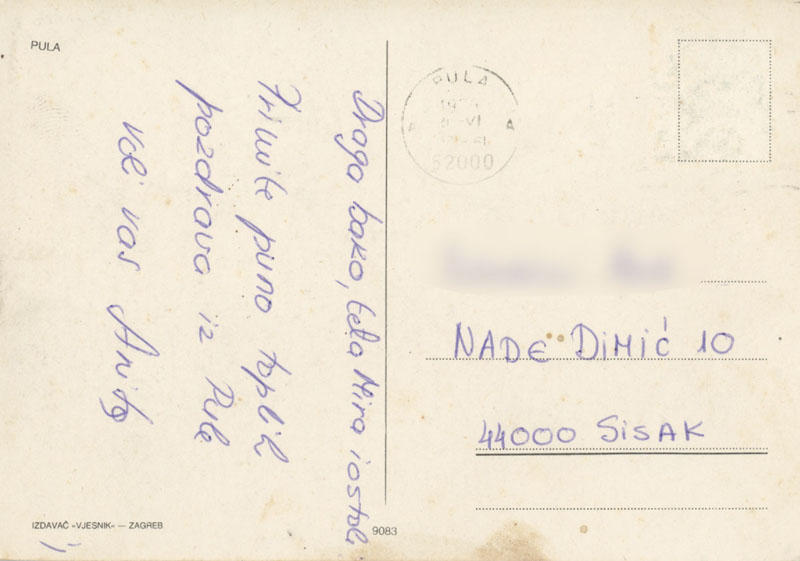 PULA
Draga bako, teta Mira i ostali
Primite puno toplih
pozdrava iz Pule
voli vas Anita
PULA
52000
NADE DIMIĆ 10
44000 SISAK
IZDAVAČ »VJESNIK« — ZAGREB
9083